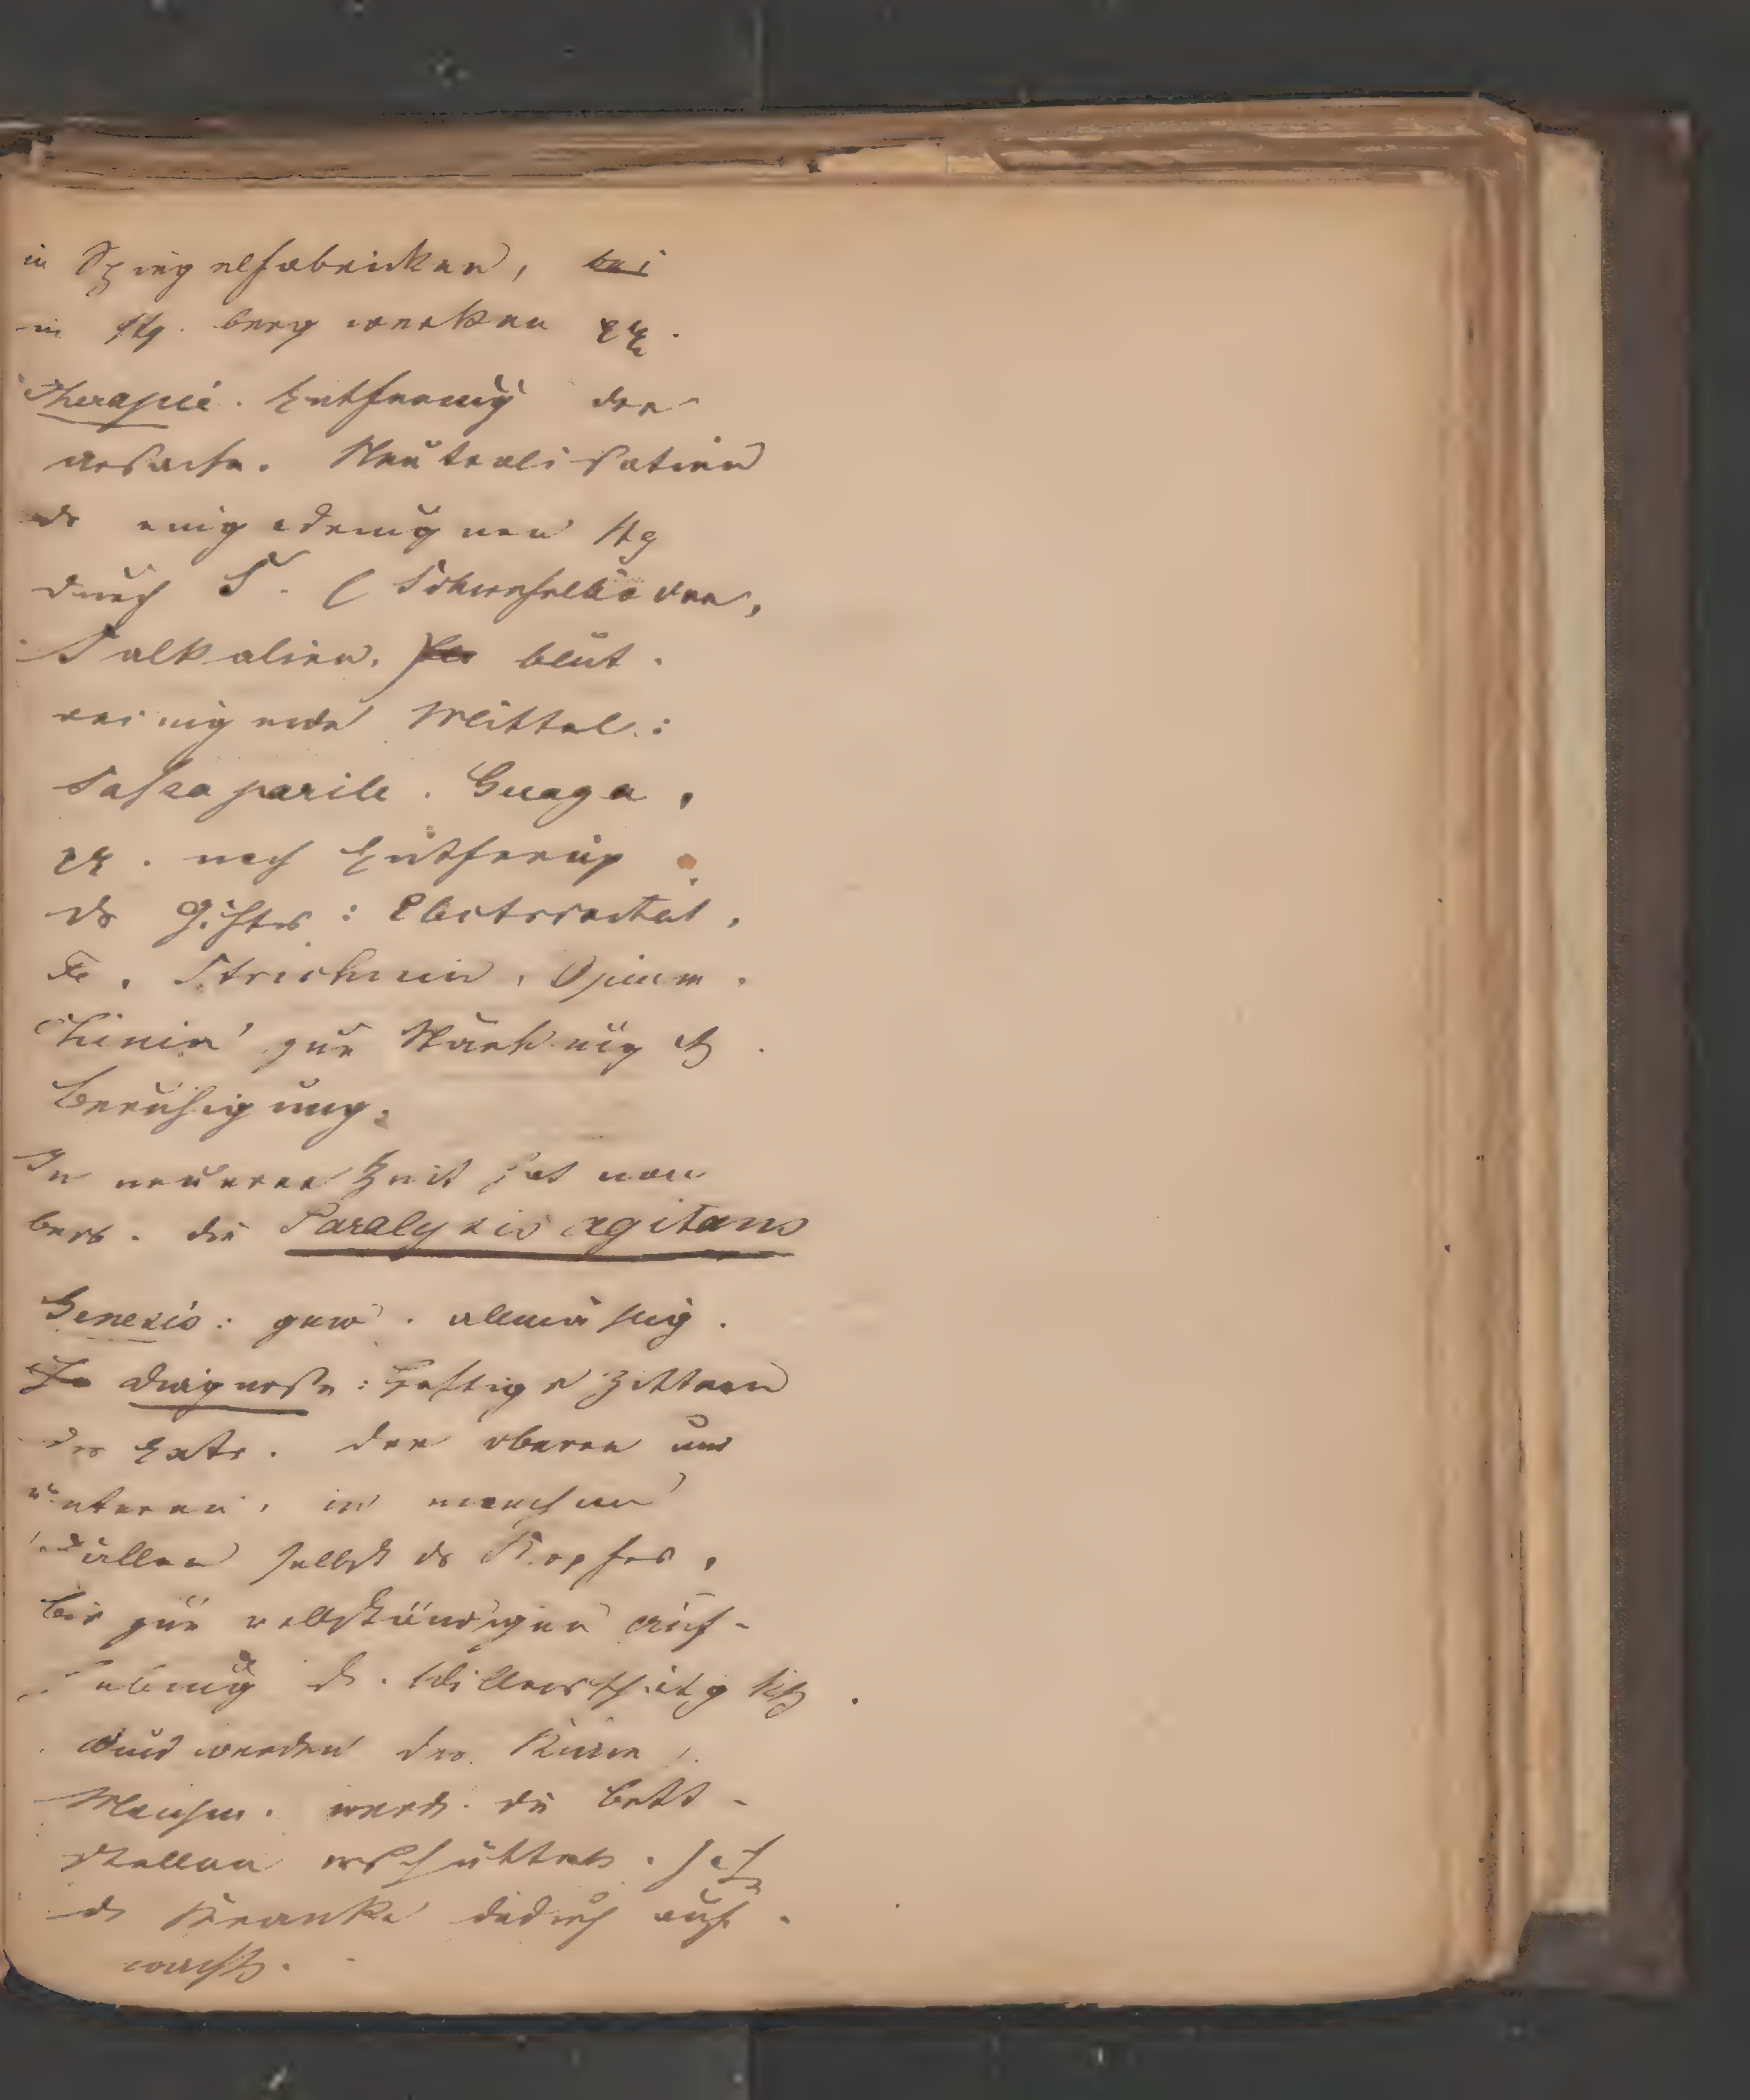 in Spiegelfabricken, bei
in Hg. bergwerken etc.
Therapie. Entfernung der
Ursache. Neutralisation
ds eingedrungnen Hg
durch S. (Schwefelbäder,
S alkalien.) blut-
reinigende Mittel:
Sassaparile. Guaga,
etc. nach Entfernung
ds Giftes: Electricität,
Fe, Strichnin, Opium.
Chinin zur Stärkung
Beruhigung.
In neuerer Zeit hat man
beob. die Paralysis agitans
Genesis: gew. allmählig.
Diagnose: Heftiges Zittern
der Extr. der oberen und
unteren, in manchen
Fällen selbst ds Kopfes,
bis zur vollständigen Auf-
hebung d. Willensthätigkt.
werden der
werd. die Bett-
stellen erschüttert.
ds Kranke dadurch auf-
wacht.